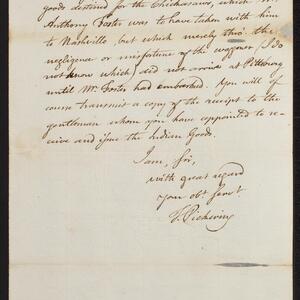 goods destined for the Chickasaws, which Mr.
Anthony Foster was to have taken with him
to Nashville, but which merely thro' the
negligence or misfortune of the waggoner (I do
not know which) did not arrive at Pittsburg
until Mr. Foster had embarked. You will of
course transmit a copy of the receipt to the
gentleman whom you have appointed to re-
ceive and issue the Indian Goods.
I am, Sir,
with great regard
your obt. servt.
T. Pickering